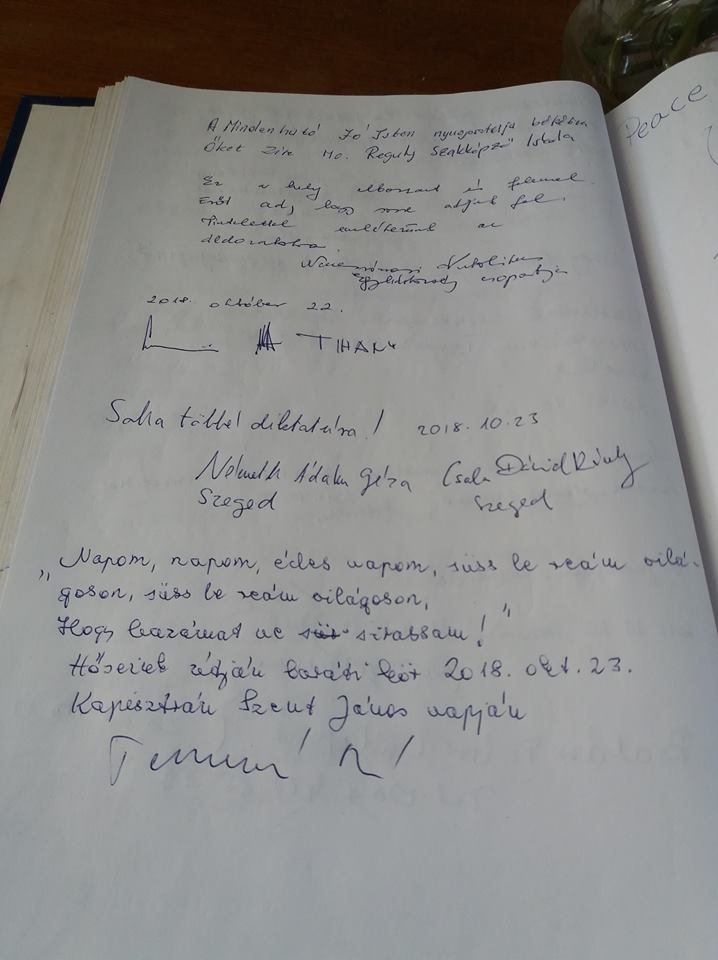 A Mindenható Jó Isten nyugosztalja békében
Őket Zirc Ho. Reguly Szakképző Iskola
Ez a hely elborzaszt és felemel.
Erőt ad, hogy sose adjuk fel.
Tisztelettel emlékezünk az
áldozatokra.
csoportja
2018. október 22.
TIHANY
Soha többé diktatúra! 2018.10.23
Németh Ádám Géza Csala Dávid
Szeged Szeged
„Napom, napom, édes napom, süss le reám vilá-
goson, süss le reám világoson,
Hogy hazámat ne sirassam!"
Hőseink útján baráti kör 2018. okt. 23.
Kapisztrán Szent János napján
Peace